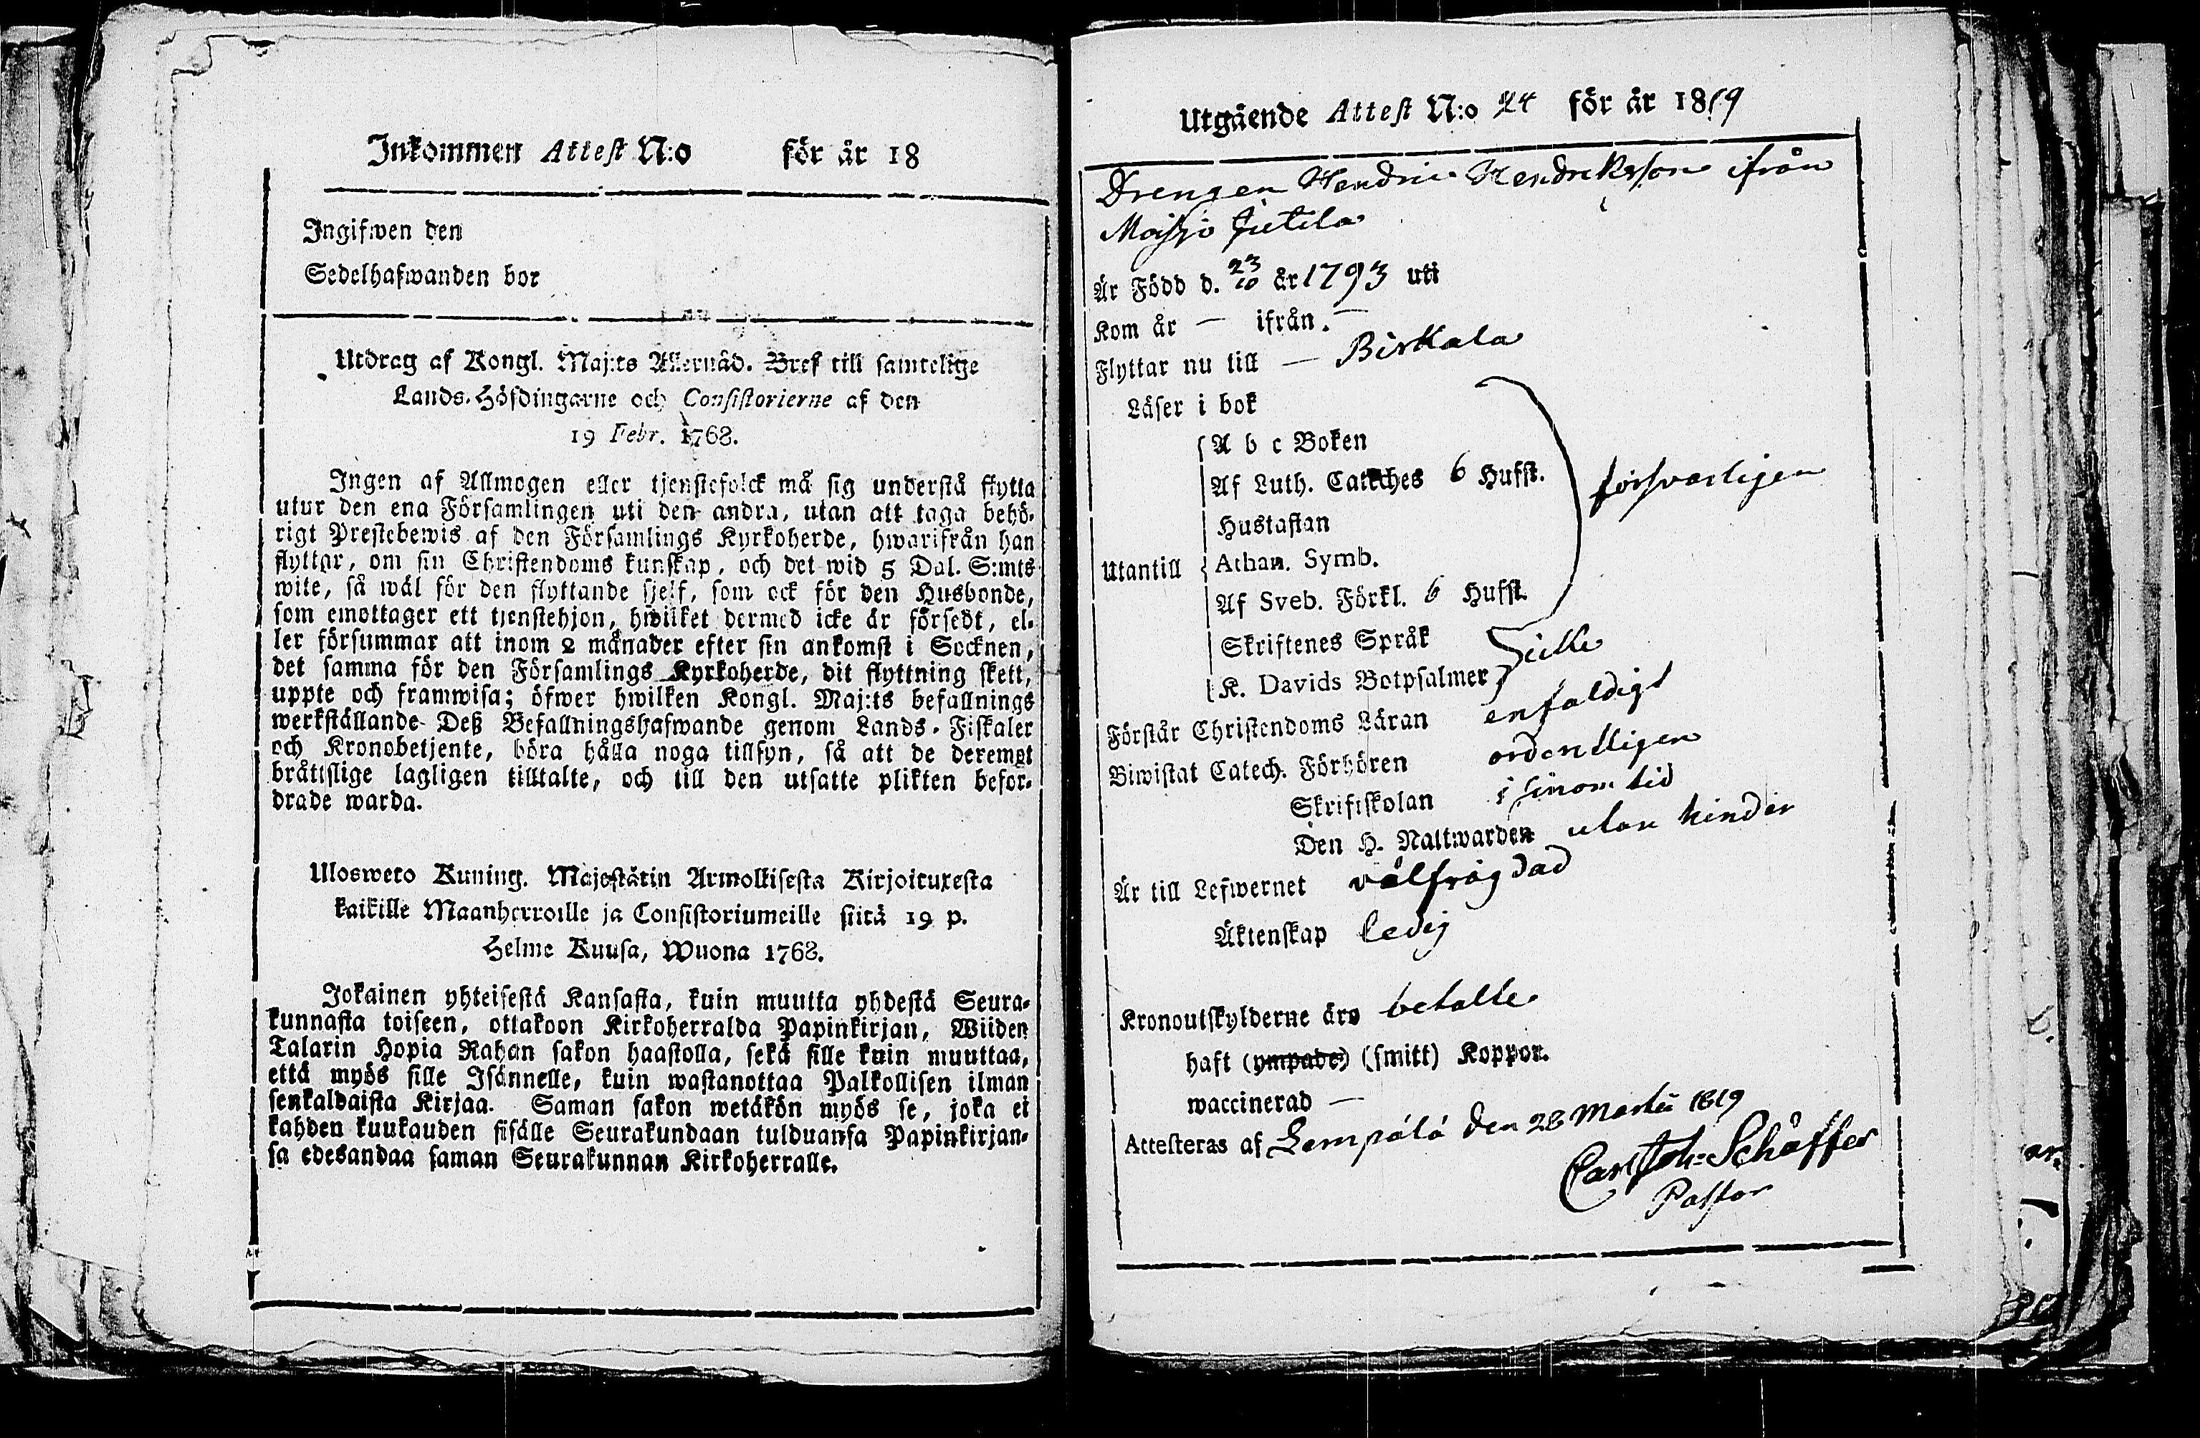 Inkommen Attest N:o för år 18
Ingifwen den
Sedelhafwanden bor
Utdrag af Kongl. Maj:ts Allernåd. Bref till samtelige
Lands-Höfdingarne och Consistorierne af den
19 Febr. 1768.
Ingen af Allmogen eller tjenstefolck må sig understå flytta
utur den ena Församlingen uti den andra, utan att taga behö-
rigt Prestebewis af den Församlings Kyrkoherde, hwarifrån han
flyttar, om sin Christendoms kunskap, och det wid 5 Dal. S:mts
wite, så wäl för den flyttande sjelf, som ock för den Husbonde,
som emottager ett tjenstehjon, hwilket dermed icke är försedt, el-
ler försummar att inom 2 månader efter sin ankomst i Socknen,
det samma för den Församlings Kyrkoherde, dit flyttning skett,
uppte och framwisa; öfwer hwilken Kongl. Maj:ts befallnings
werkställande Deß Befallningshafwande genom Lands-Fiskaler
och Kronobetjente, böra hålla noga tillsyn, så att de deremot
bråttslige lagligen tilltalte, och till den utsatte plikten befor-
drade warda.
Ulosweto Kuning. Majestätin Armollisesta Kirjoituxesta
kaikille Maanherroille ja Consistoriumeille siitä 19 p.
Helme Kuusa, Wuona 1768.
Jokainen yhteisestä Kansasta, kuin muutta yhdestä Seura-
kunnasta toiseen, ottakoon Kirkoherralda Papinkirjan, Wiiden
Talarin Hopia Rahan sakon haastolla, sekä sille kuin muuttaa,
että myös sille Isännelle, kuin wastanottaa Palkollisen ilman
senkaldaista Kirjaa. Saman sakon wetäkön myös se, joka ei
kahden kuukauden sisälle Seurakundaan tulduansa Papinkirjan-
sa edesandaa saman Seurakunnan Kirkoherralle.
Utgående Attest N:o 24 för år 1819
Drengen Hendric Hendriksson ifrån
Moisjo Jutila
Är Född d. 23/10 år 1793 uti
Kom år — ifrån. —
Flyttar nu till — Birkala
Läser i bok
A b c Boken
Af Luth. Catches 6 Hufst. försvarligen
Hustaflan
Utantill Athan. Symb.
Af Sveb. Förkl. 6 Hufst.
Skriftenes Språk
K. Davids Botpsalmer icke
Förstår Christendoms Läran enfaldigt
Biwistat Catech. Förhören ordentligen
Skriftskolan i sinom tid
Den H. Nattwarden utan hinder
Är till Lefwernet välfrägdad
Äktenskap ledig
Kronoutskylderne äro betalte
haft (ympade) (smitt) Koppor.
waccinerad —
Attesteras af Lempälä den 28 Martii 1819
Carl Joh: Schäffer
Pastor